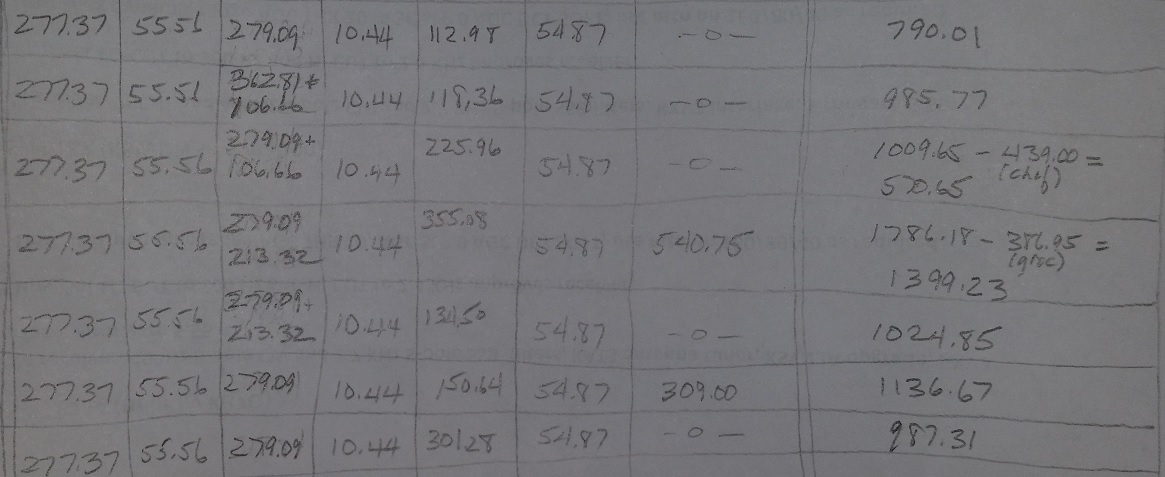 277.37 55.51 279.09 10.44 112.98 54.87 -0- 790.01
277.37 55.51 362.81+ 10.44 118.36 54.87 -0- 985.77
106.66
277.37 55.56 279.09+ 10.44 225.96 54.87 -0- 1009.65 - 439.00 =
106.66 (chef)
570.65
277.37 55.56 279.09 10.44 355.08 54.87 540.75 1786.18 - 386.95 =
213.32 (groc)
1399.23
277.37 55.56 279.09+ 10.44 134.50 54.87 -0- 1024.85
213.32
277.37 55.56 279.09 10.44 150.64 54.87 309.00 1136.67
277.37 55.56 279.09 10.44 30128 54.87 -0- 987.31